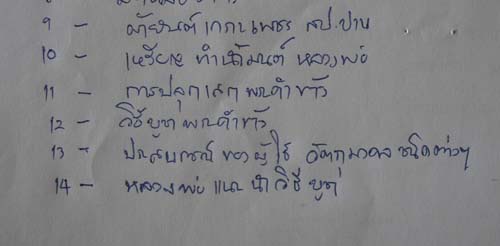 9 - ผ้ายันต์เกราะเพชร ลป.ปาน
10 - เหรียญ ทำน้ำมนต์ หลวงพ่อ
11 - การปลุกเสก พระคำข้าว
12 - วิธีบูชาพระคำข้าว
13 - ประสบการณ์ ของผู้ใช้ วัตถุมงคล ชนิดต่างๆ
14 - หลวงพ่อ แนะนำวิธีบูชา